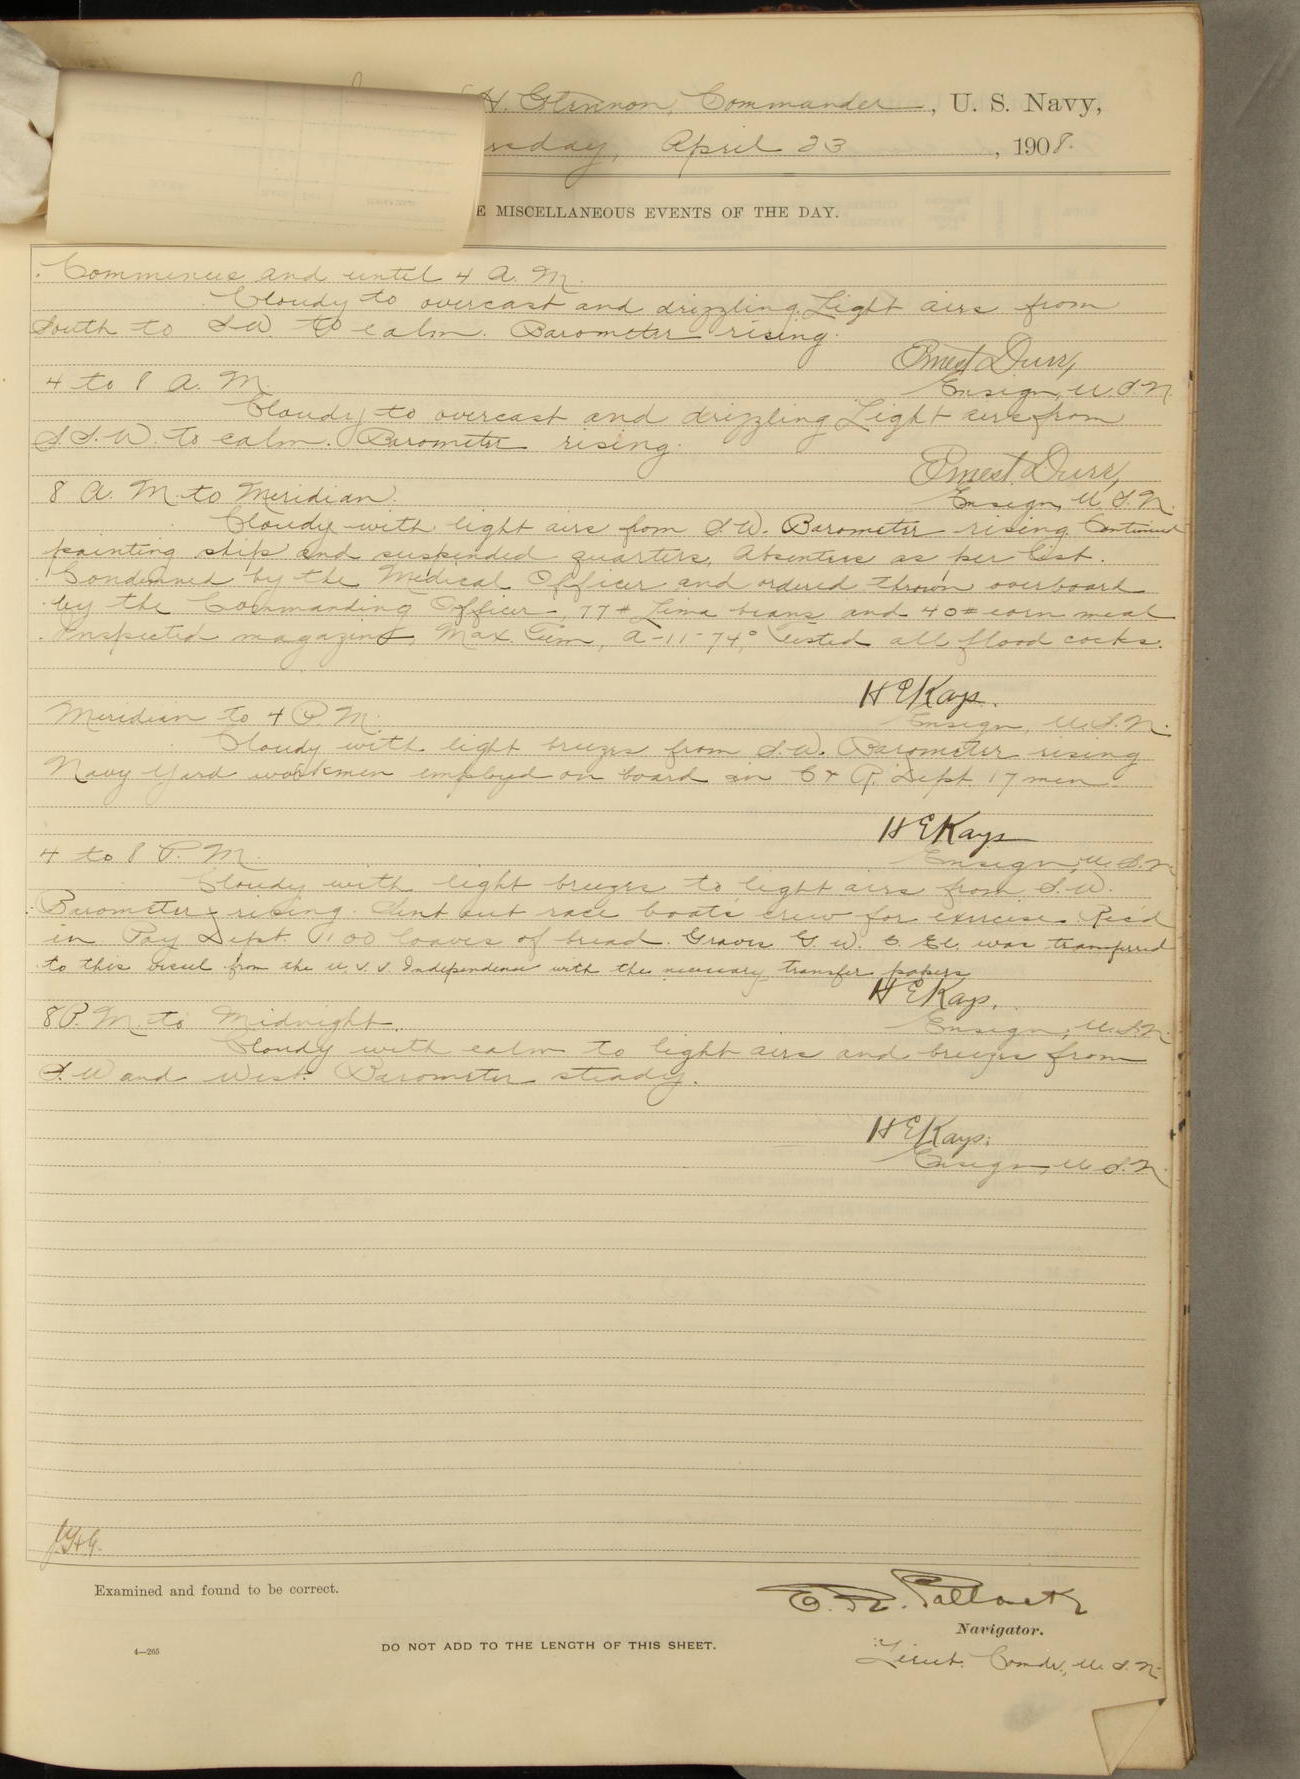 H. Glennon, Commander, U. S. Navy,
rsday, April 23, 1908.
E MISCELLANEOUS EVENTS OF THE DAY.
Commences and until 4 A. M.
Cloudy to overcast and drizzling. Light airs from
South to S.W. to calm. Barometer rising.
Ernest Durr,
4 to 8 A. M.
Ensign, U.S.N.
Cloudy to overcast and drizzling Light airs from
S.S.W. to calm. Barometer rising.
Ernest Durr,
8 A. M. to Meridian.
Ensign, U.S.N.
Cloudy with light airs fom S.W. Barometer rising. Continued
painting ship and suspended quarters. Absentees as per list.
Condemned by the Medical Officer and ordered thrown overboard
by the Commanding Officer, 77# Lima beans and 40# corn meal
Inspected magazines, Max. Tem, A-11-74°, Tested all flood cocks.
H E Kays.
Meridian to 4 P M.
Ensign, U.S.N.
Cloudy with light breezes from S.W. Barometer rising
Navy Yard workmen employed on board in C & R. Dept. 17 men.
H E Kays
4 to 8 P. M.
Ensign, U.S.N.
Cloudy with light breezes to light airs from S.W.
Barometer rising. Sent out race boats crew for exercise. Rec'd
in Pay Dept. 100 loaves of bread. Graves G. W. C. El. was transferred
to this vessel from the U.S.S. Independence with the necessary transfer papers
H E Kays.
8 P. M. to Midnight.
Ensign, U.S.N.
Cloudy with calm to light airs and breezes from
S.W and West. Barometer steady.
H E Kays.
Ensign, U.S.N.
JHG.
Examined and found to be correct.
E. R. Pollock
Navigator.
4—265
DO NOT ADD TO THE LENGTH OF THIS SHEET.
Lieut. Comdr, U.S.N.